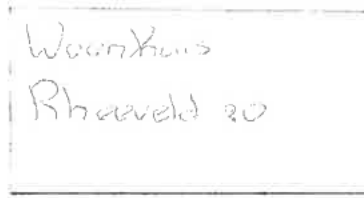 Woonhuis
Rheeveld 20